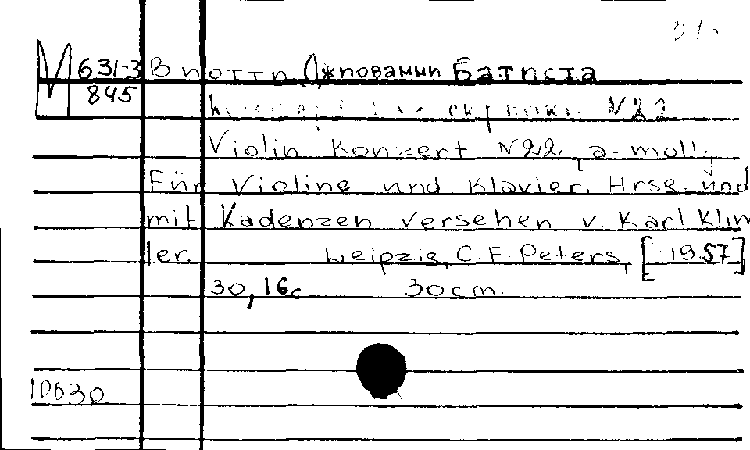 М 631-3 Виотти Джповамни Батиста
845 скрипки N22
Violin Konzert N22, a-moll.
Für Violine und Klavier. Hrsg. und
mit Kadenzen versehen v. Karl Klin
ler. Leipzig, C. F. Peters, [1957]
30, 16c 30cm.
10630